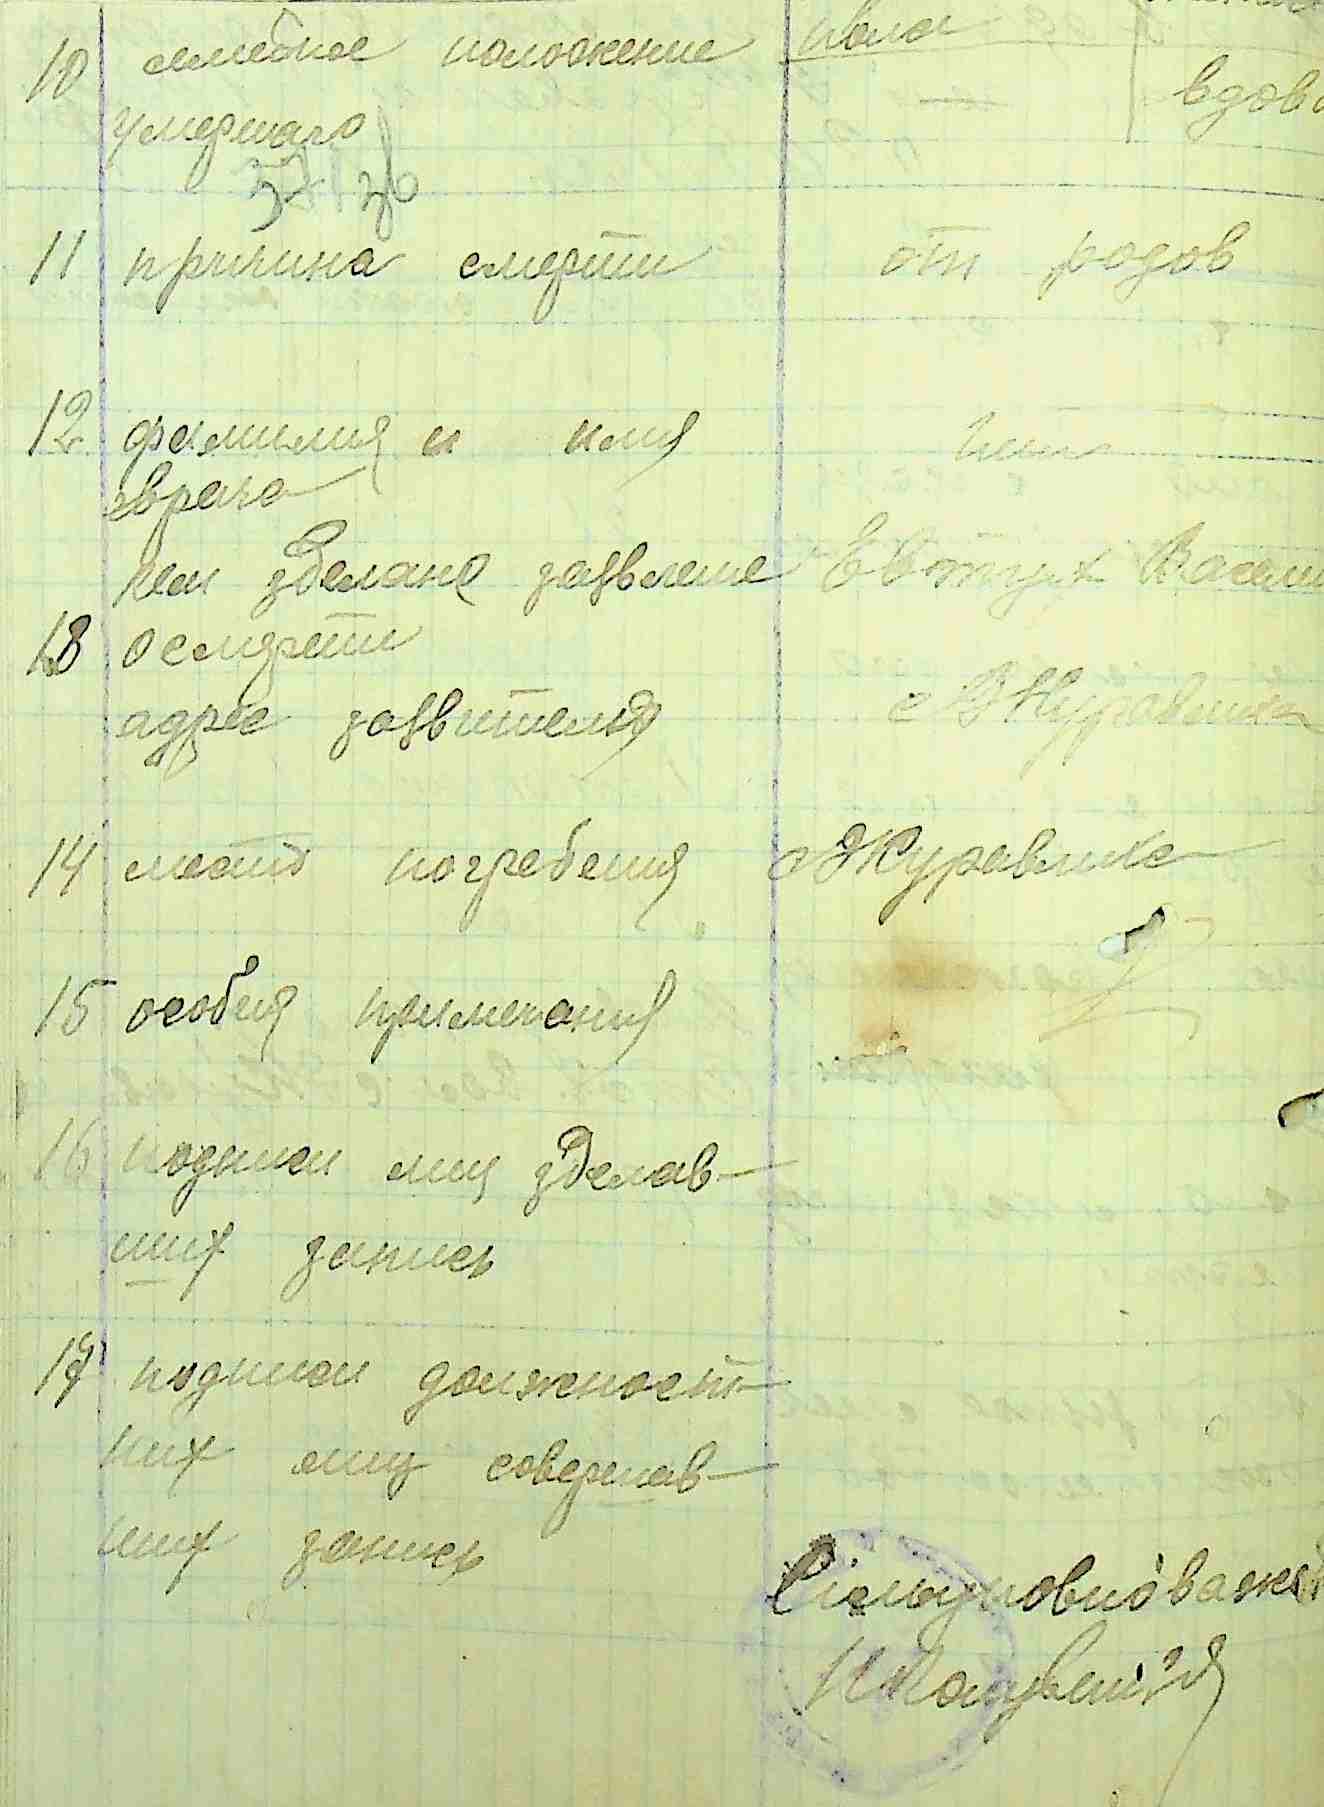 10 семейное положение
вдова
умершаго
11 причина смерти от родов
12 фамилия и имя нет
врача
кем зделано заявление Евтух Васили
13 о смерти
адрес заявителя с Журавлиха
14 место погребения с Журавлиха
15 особия примечания
16 подписи лиц зделав-
ших запись
17 подписи должност-
них лиц совершав-
ших запись
Сільуповнова